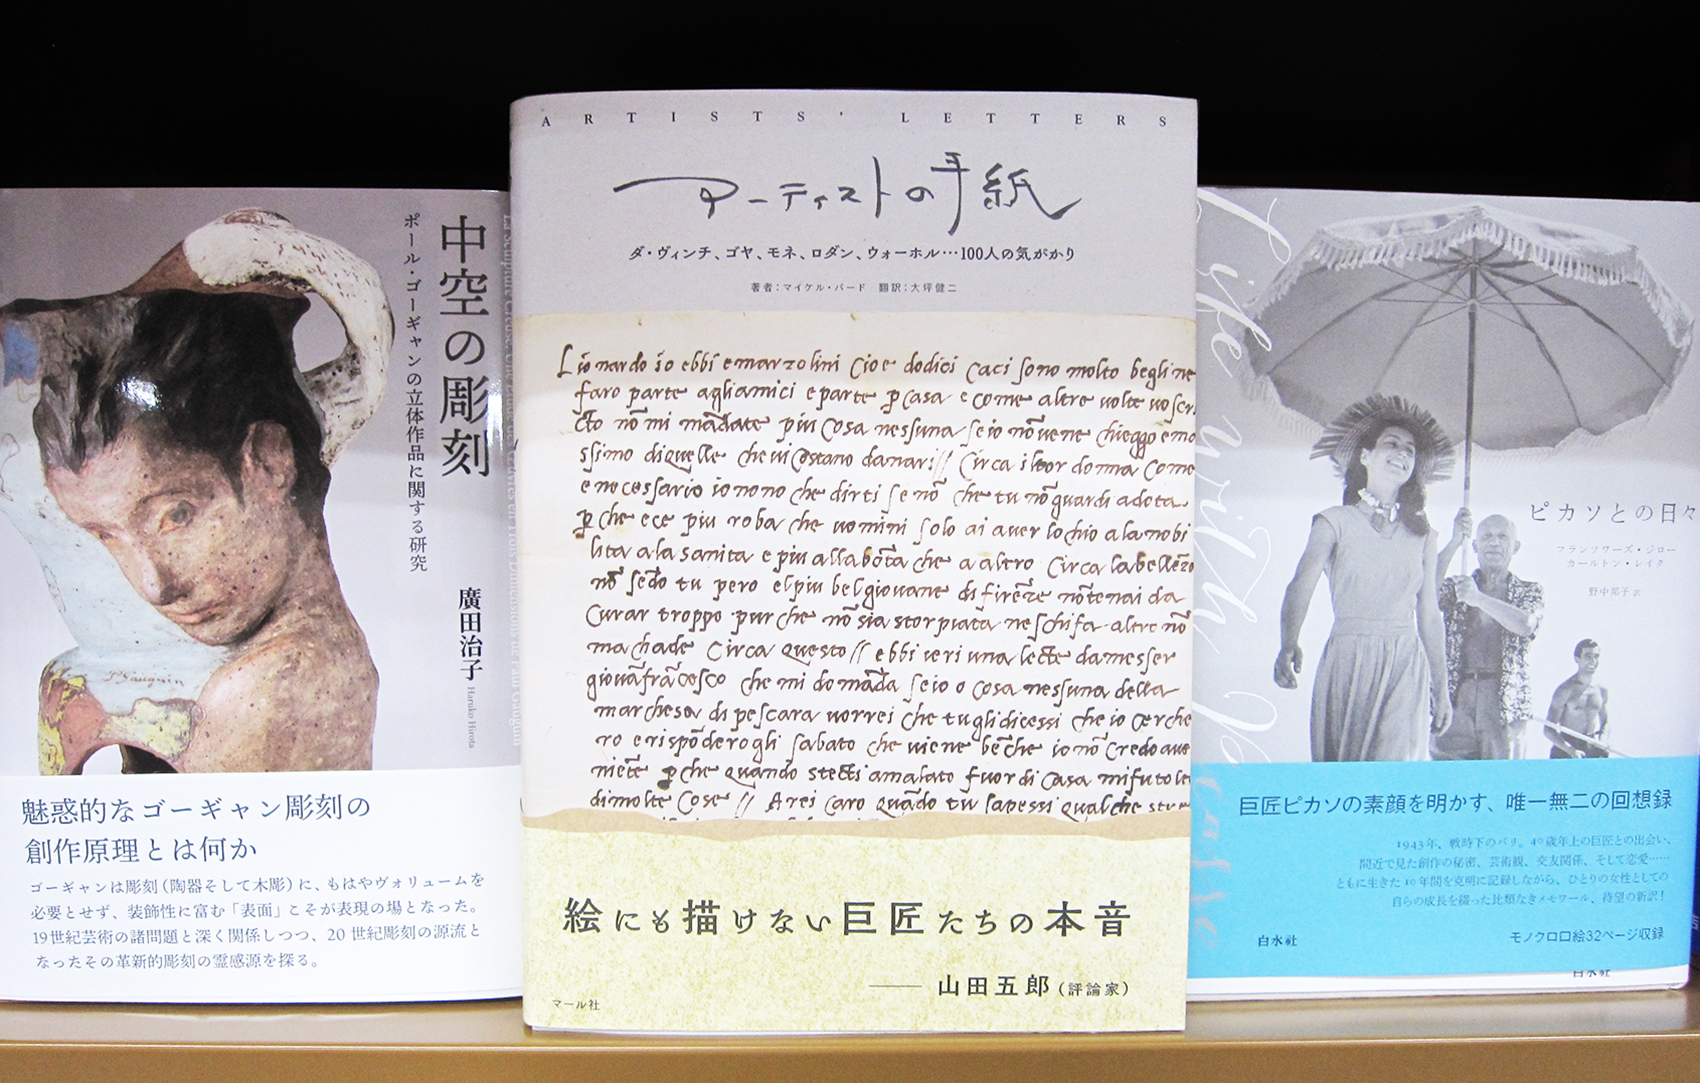 中空の彫刻
ポール・ゴーギャンの立体作品に関する研究
廣田治子
Haruko Hirota
P Gauguin
魅惑的なゴーギャン彫刻の
創作原理とは何か
ゴーギャンは彫刻（陶器そして木彫）に、もはやヴォリュームを
必要とせず、装飾性に富む「表面」こそが表現の場となった。
19世紀芸術の諸問題と深く関係しつつ、20世紀彫刻の源流と
なったその革新的彫刻の霊感源を探る。
ARTISTS' LETTERS
アーティストの手紙
ダ・ヴィンチ、ゴヤ、モネ、ロダン、ウォーホル…100人の気がかり
著者：マイケル・バード 翻訳：大坪健二
Lionardo io ebbi e marzolini cioe dodici caci sono molto begli ne
faro parte agli amici e parte p casa e come altre volte vo scri
cto nō mi mādate piu cosa nessuna se io nō ve ne chieggo e mo
ssimo di quelle che vi costano danari // Circa il tor donna come
e necessario io no no che dirti se nō che tu nō guardi a dota
p che e ce piu roba che uomini solo ai aver lochio a la nobi
lita a la sanita e piu alla bōta che a altro Circa la bellezza
nō sēdo tu pero el piu bel giovane di firēze nō te nai da
curar troppo pur che nō sia storpiata ne schifa altro nō
m achade Circa questo // ebbi ieri una lecte da messer
giovāfrācesco che mi domāda se io o cosa nessuna della
marchesa di pescara vorrei che tu gli dicessi che io cerche
ro e rispōderogli sabato che viene bēche io nō credo ave
niēte p che quando stecti amalato fuor di casa mi fu tolte
di molte cose // Arei caro quādo tu sapessi qualche
絵にも描けない巨匠たちの本音
山田五郎（評論家）
マール社
Life with Picasso
ピカソとの日々
フランソワーズ・ジロー
カールトン・レイク
野中邦子 訳
巨匠ピカソの素顔を明かす、唯一無二の回想録
1943年、戦時下のパリ。40歳年上の巨匠との出会い、
間近で見た創作の秘密、芸術観、交友関係、そして恋愛……
ともに生きた10年間を克明に記録しながら、ひとりの女性としての
自らの成長を綴った比類なきメモワール、待望の新訳！
白水社
モノクロ口絵32ページ収録
白水社